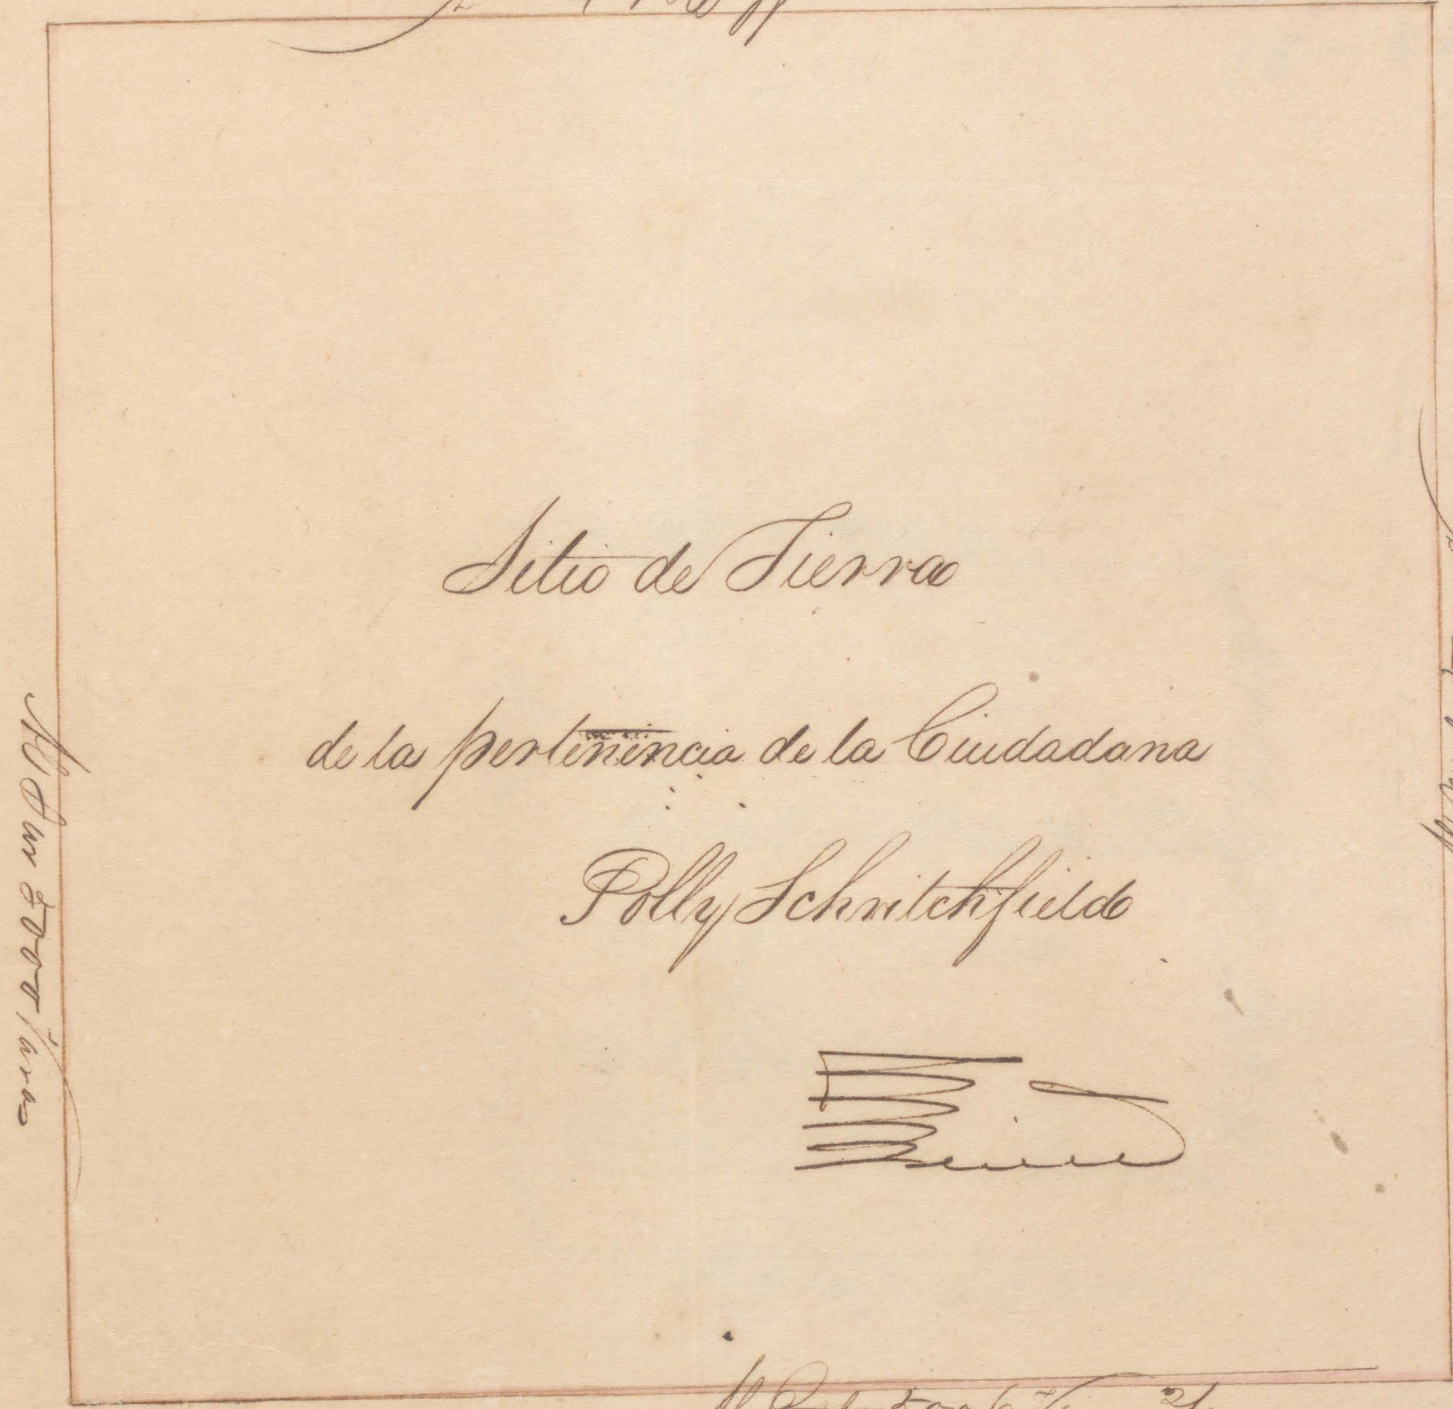 Sitio de Tierra
de la pertenencia de la Ciudadana
Polly Schritchfield
Al Sur 5000 Varas